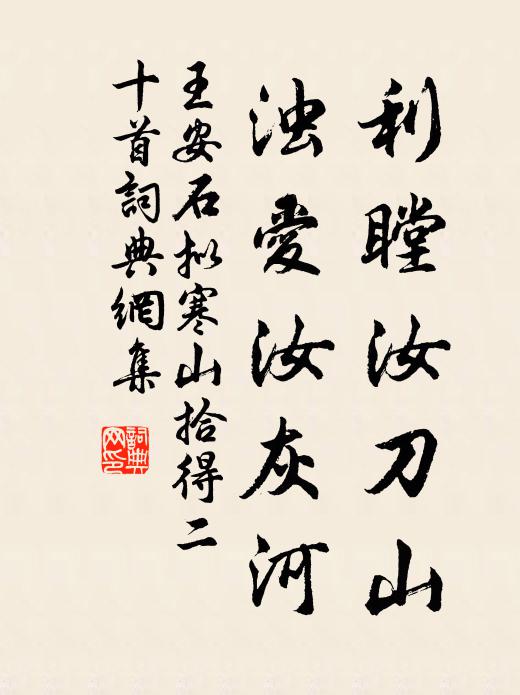 利瞠汝刀山
浊愛汝灰河
王安石拟寒山拾得二
十首詞典網集
詞典
网印